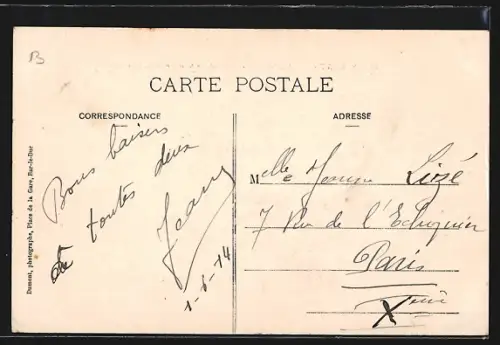 B
CARTE POSTALE
CORRESPONDANCE
ADRESSE
Bons baisers
à toutes deux
Jean
1-6-14
Melle Lizé
7 Rue de l'Echiquier
Paris
X
Dumont, photographe, Place de la Gare, Bar-le-Duc